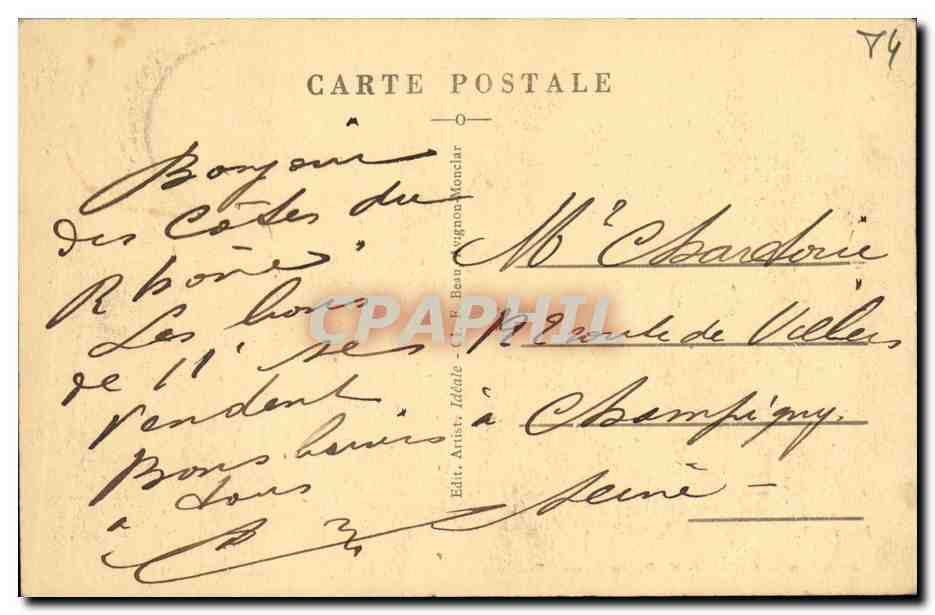 T4
CARTE POSTALE
Bonjour
des Côtes du
Rhône
Les bons
de 11° se
vendent
Bons baisers
à tous
Edit. Artist. Idéale - F. Beau, Avignon-Monclar
Mr Chardoné
route de Villiers
à Champigny
Seine
CPAPHIL